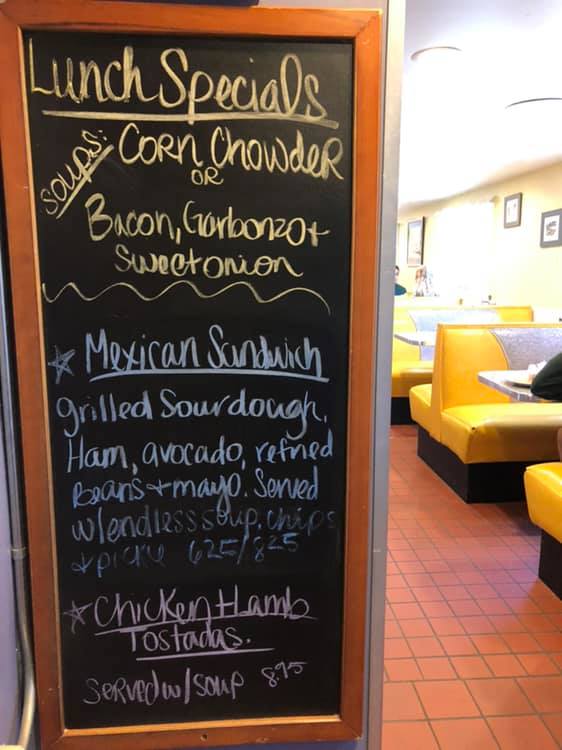 Lunch Specials
Soups: Corn Chowder
or
Bacon, Garbonzo +
Sweet onion
Mexican Sandwich
grilled Sourdough,
Ham, avocado, refried
Beans + mayo. Served
w/endless soup, chips
+ pickle 6.25/8.25
Chicken + Lamb
Tostadas.
Served w/ soup 8.95